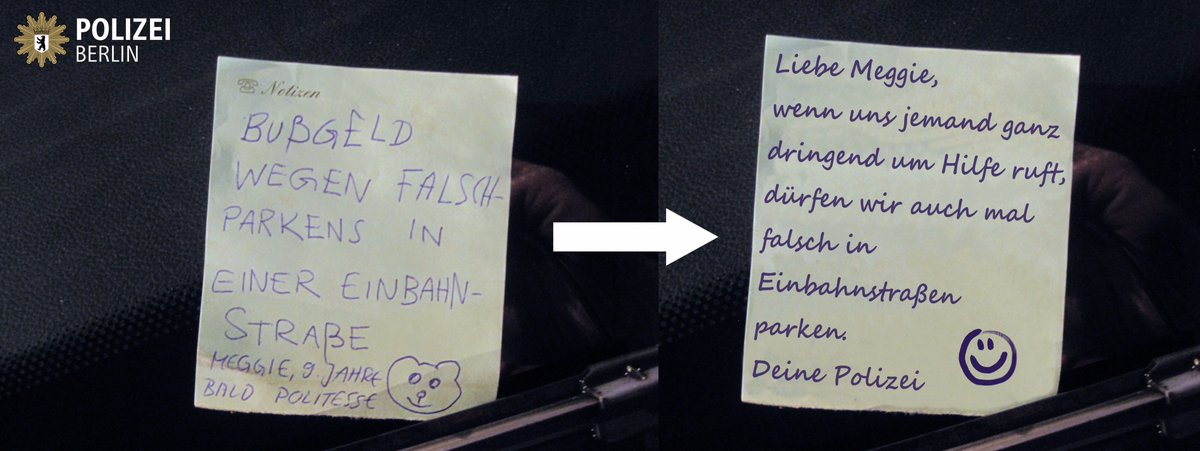 POLIZEI
BERLIN
Notizen
BUßGELD
WEGEN FALSCH-
PARKENS IN
EINER EINBAHN-
STRAßE
MEGGIE, 9. JAHRE
BALD POLITESSE
Liebe Meggie,
wenn uns jemand ganz
dringend um Hilfe ruft,
dürfen wir auch mal
falsch in
Einbahnstraßen
parken.
Deine Polizei